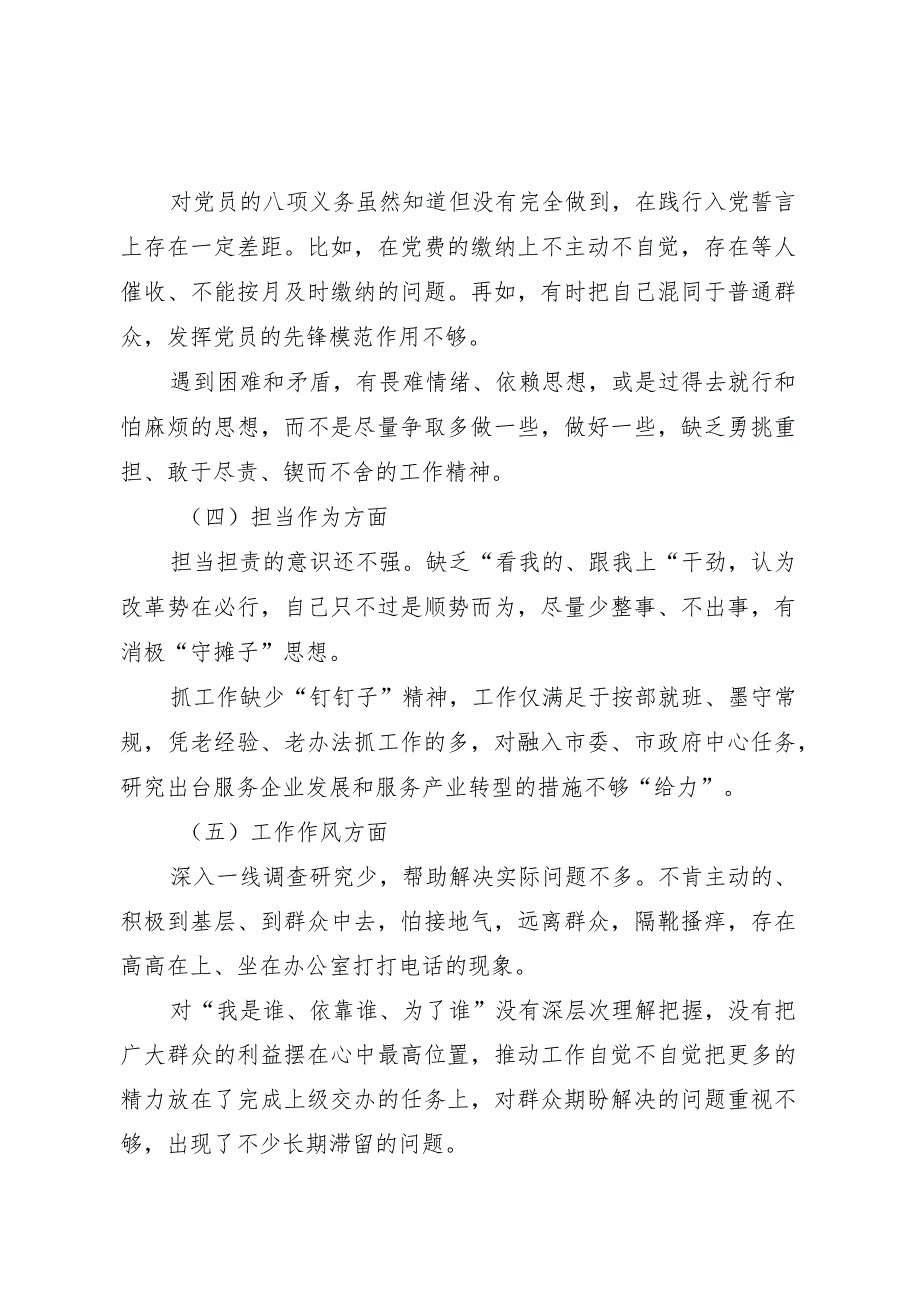 对党员的八项义务虽然知道但没有完全做到，在践行入党誓言
上存在一定差距。比如，在党费的缴纳上不主动不自觉，存在等人
催收、不能按月及时缴纳的问题。再如，有时把自己混同于普通群
众，发挥党员的先锋模范作用不够。
遇到困难和矛盾，有畏难情绪、依赖思想，或是过得去就行和
怕麻烦的思想，而不是尽量争取多做一些，做好一些，缺乏勇挑重
担、敢于尽责、锲而不舍的工作精神。
（四）担当作为方面
担当担责的意识还不强。缺乏“看我的、跟我上“干劲，认为
改革势在必行，自己只不过是顺势而为，尽量少整事、不出事，有
消极“守摊子”思想。
抓工作缺少“钉钉子”精神，工作仅满足于按部就班、墨守常
规，凭老经验、老办法抓工作的多，对融入市委、市政府中心任务，
研究出台服务企业发展和服务产业转型的措施不够“给力”。
（五）工作作风方面
深入一线调查研究少，帮助解决实际问题不多。不肯主动的、
积极到基层、到群众中去，怕接地气，远离群众，隔靴搔痒，存在
高高在上、坐在办公室打打电话的现象。
对“我是谁、依靠谁、为了谁”没有深层次理解把握，没有把
广大群众的利益摆在心中最高位置，推动工作自觉不自觉把更多的
精力放在了完成上级交办的任务上，对群众期盼解决的问题重视不
够，出现了不少长期滞留的问题。